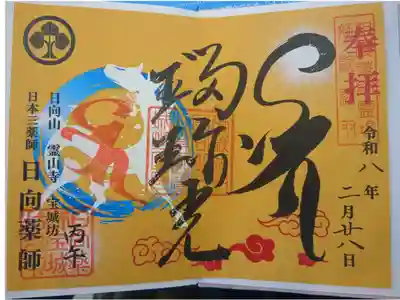 奉拝
令和八年
二月廿八日
瑠璃光
丙午
日向山 霊山寺 宝城坊
日本三薬師 日向薬師